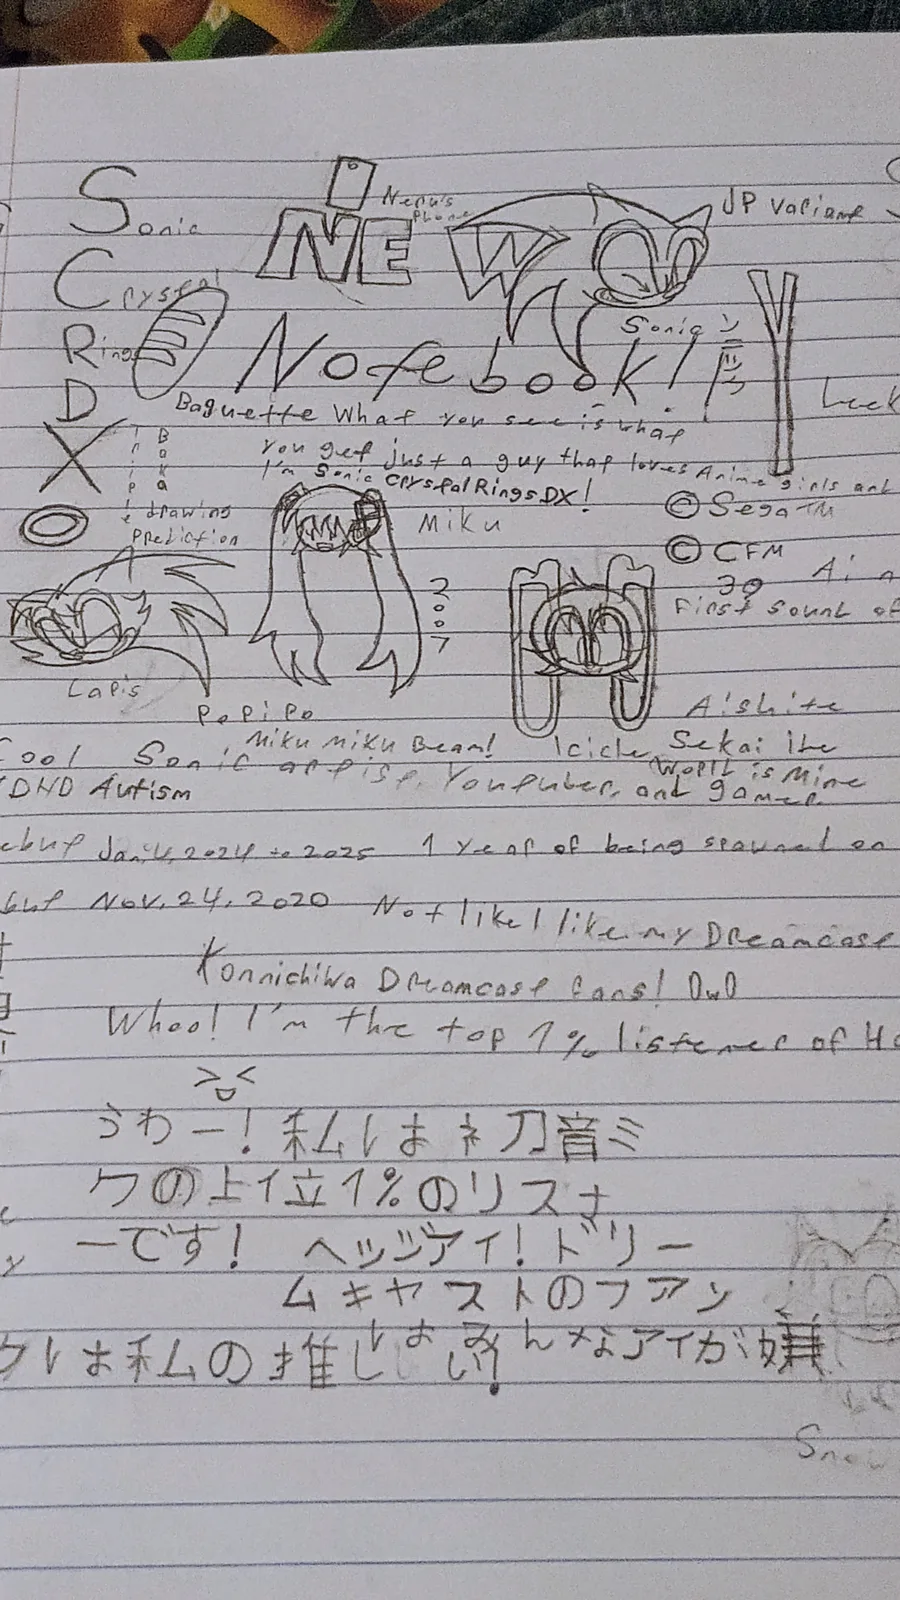 Sonic
Crystal
Rings
DX
Neru's
Phone
NEW
JP Variant
Notebook!
Sonic
Leek
Baguette What you see is what
you get just a guy that loves Anime girls and
I'm Sonic CrystalRingsDX!
drawing
Prediction
Miku
2007
© Sega TM
© CFM
39
First sount of
Lapis
PoPiPo
Miku Miku Beam!
Icicle
Aishite
Sekai
World is Mine
Cool Sonic artist, Youtuber, and gamer
DHD Autism
Jan.4, 2024 to 2025 1 year of being spawned on
Nov. 24, 2020 Not like I like my Dreamcast
Konnichiwa Dreamcast fans! OwO
Whoo! I'm the top 1% listener of
うわー!私は初音ミ
クの上位1%のリスナ
ーです! ヘッジアイ!ドリー
ムキャストのファン
クは私の推し
みんなアイが嫌
い!
Snow